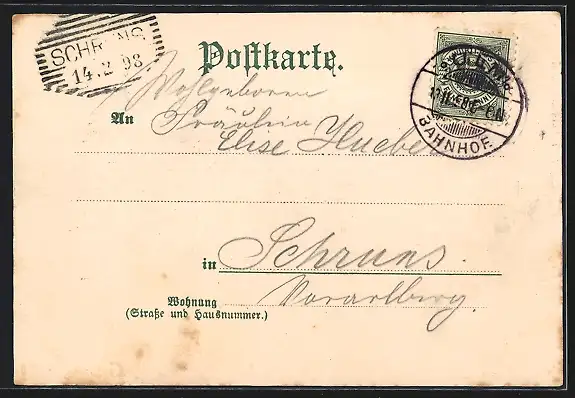 SCHRUNS
14.2.98
Postkarte.
Wohlgeboren
An Fräulein
Elise Hueber
in Schruns
Vorarlberg
Wohnung
(Straße und Hausnummer.)
BAHNHOF